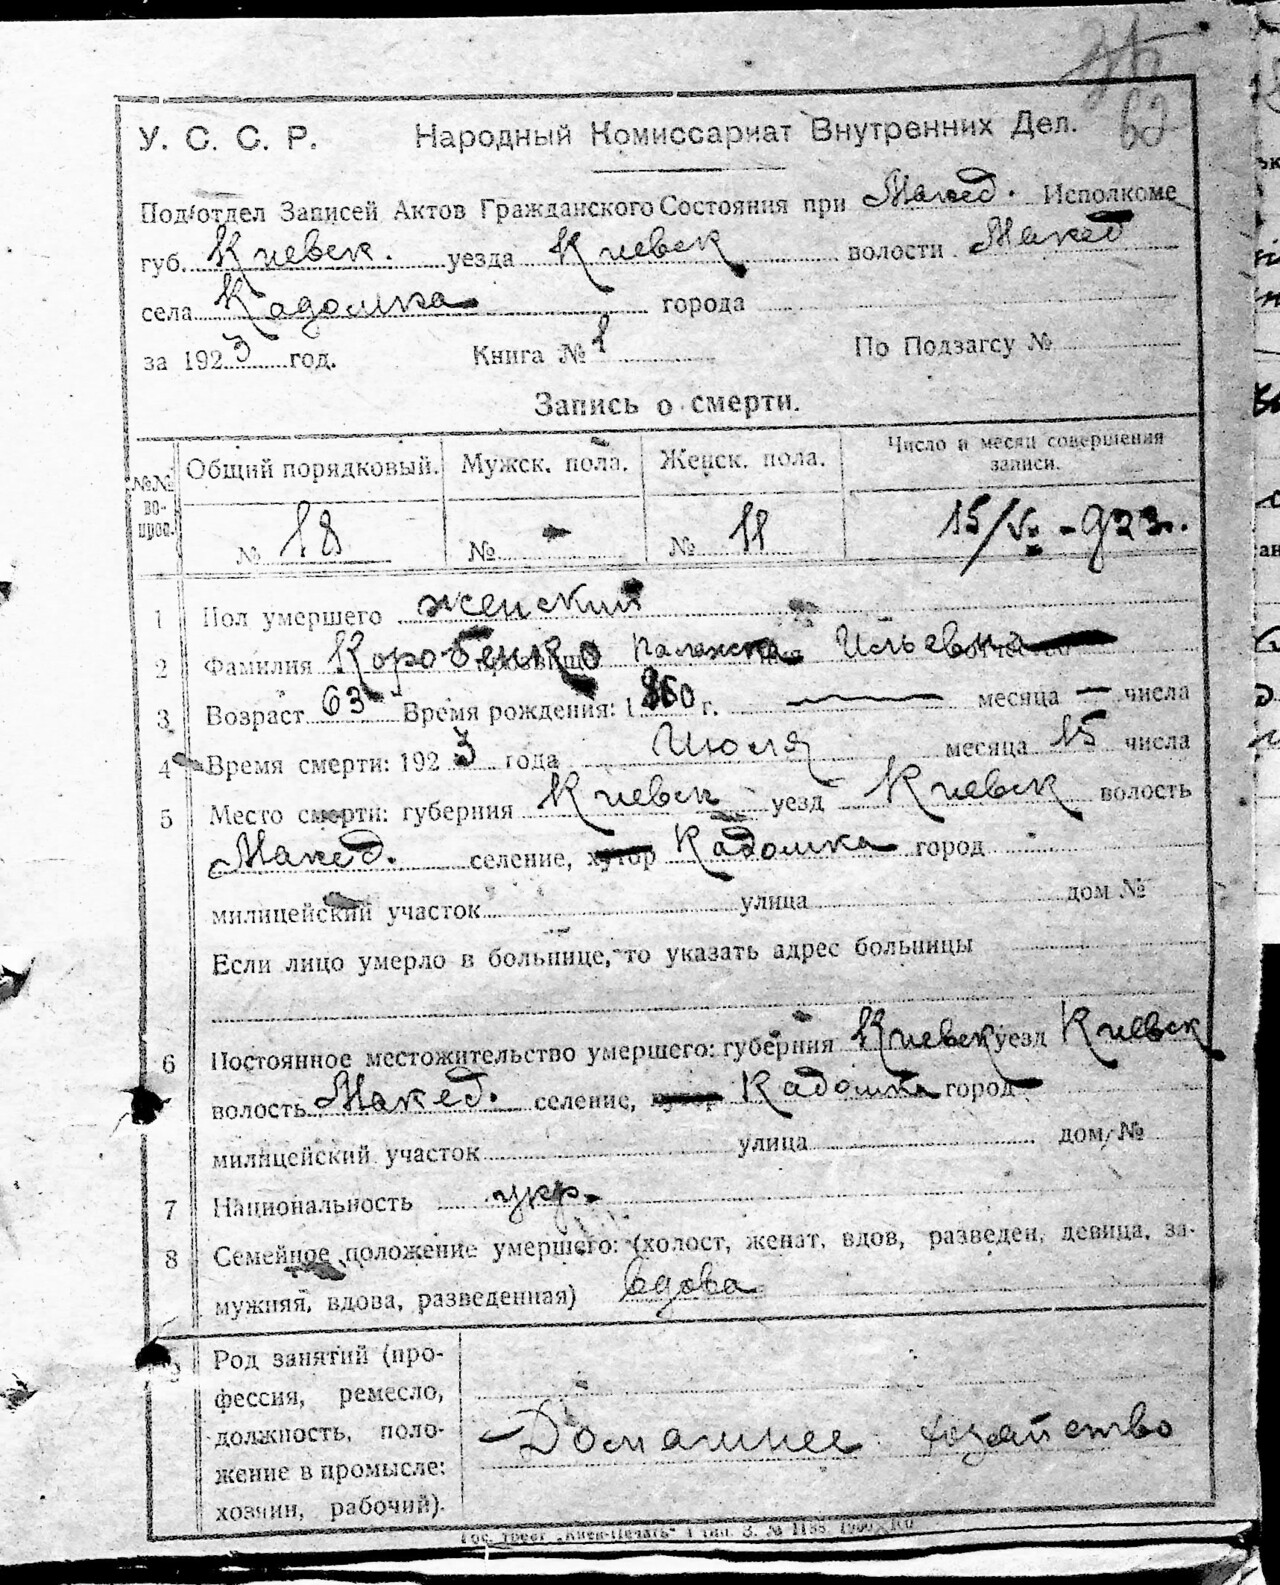 У. С. С. Р. Народный Комиссариат Внутренних Дел.
Под'отдел Записей Актов Гражданского Состояния при Макед. Исполкоме
губ. Киевск. уезда Киевск волости Макед
села Кадомка города
за 1923 год. Книга № 1 По Подзагсу №
Запись о смерти.
№№ вопрос. Общий порядковый. Мужск. пола. Женск. пола. Число и месяц совершения записи.
№ 18 № - № 11 15/VII - 923 г.
1 Пол умершего женский
2 Фамилия Коробенко Палажка Ильевна
3 Возраст 63 Время рождения: 1860 г. — месяца — числа
4 Время смерти: 1923 года Июля месяца 15 числа
5 Место смерти: губерния Киевск уезд Киевск волость
Макед. селение, хутор Кадомка город
милицейский участок улица дом №
Если лицо умерло в больнице, то указать адрес больницы
6 Постоянное местожительство умершего: губерния Киевск уезд Киевск
волость Макед. селение, хутор Кадомка город
милицейский участок улица дом №
7 Национальность укр.
8 Семейное положение умершего: (холост, женат, вдов, разведен, девица, за-
мужняя, вдова, разведенная) вдова
9 Род занятий (про-
фессия, ремесло,
должность, поло-
жение в промысле:
хозяин, рабочий).
Домашнее хозяйство
Гос. трест „Киев-Печать" 1 тип. З. № 1188